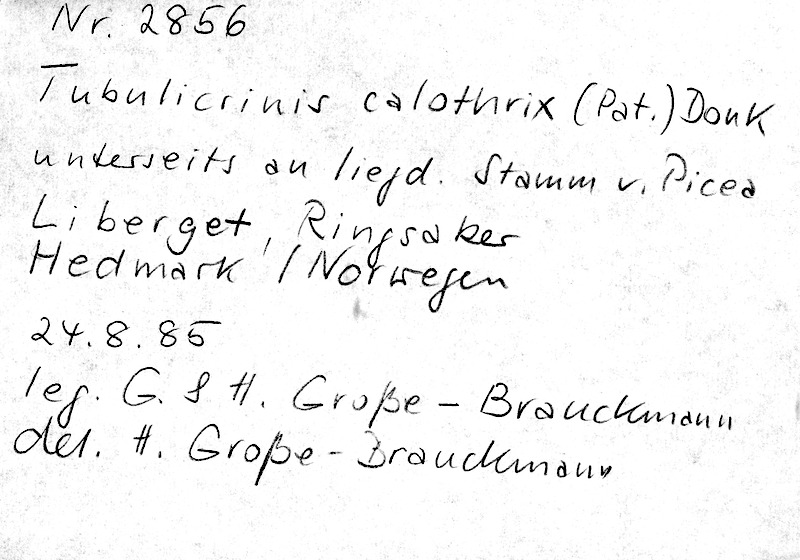 Nr. 2856
Tubulicrinis calothrix (Pat.) Donk
unterseits an liegd. Stamm v. Picea
Liberget, Ringsaker
Hedmark / Norwegen
24.8.85
leg. G. & H. Große-Brauckmann
det. H. Große-Brauckmann